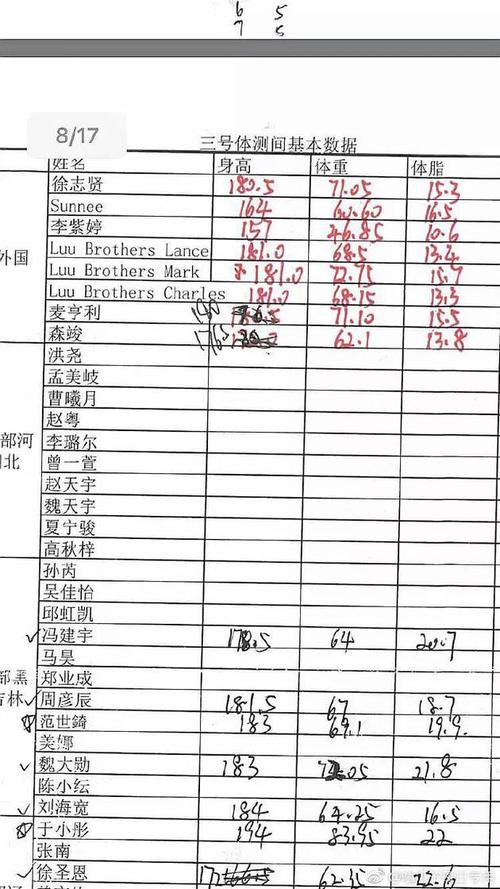 6 5
7
8/17
三号体测间基本数据
姓名 身高 体重 体脂
徐志贤 180.5 71.05 15.3
Sunnee 164 60.60 16.5
李紫婷 157 46.85 10.6
外国
Luu Brothers Lance 181.0 68.5 13.4
Luu Brothers Mark 181.0 72.75 15.7
Luu Brothers Charles 181.0 68.15 13.3
麦亨利 71.10 15.5
森竣 62.1 13.8
洪尧
孟美岐
曹曦月
赵粤
部河
李璐尔
北
曾一萱
赵天宇
魏天宇
夏宁骏
高秋梓
孙芮
吴佳怡
邱虹凯
冯建宇 178.5 64 20.7
马昊
部黑
郑业成
吉林
周彦辰 181.5 67 18.7
范世錡 183 69.1 19.9
美娜
魏大勋 183 21.8
陈小纭
刘海宽 184 64.25 16.5
于小彤 194 83.95 22
张南
徐圣恩 62.35 22.6